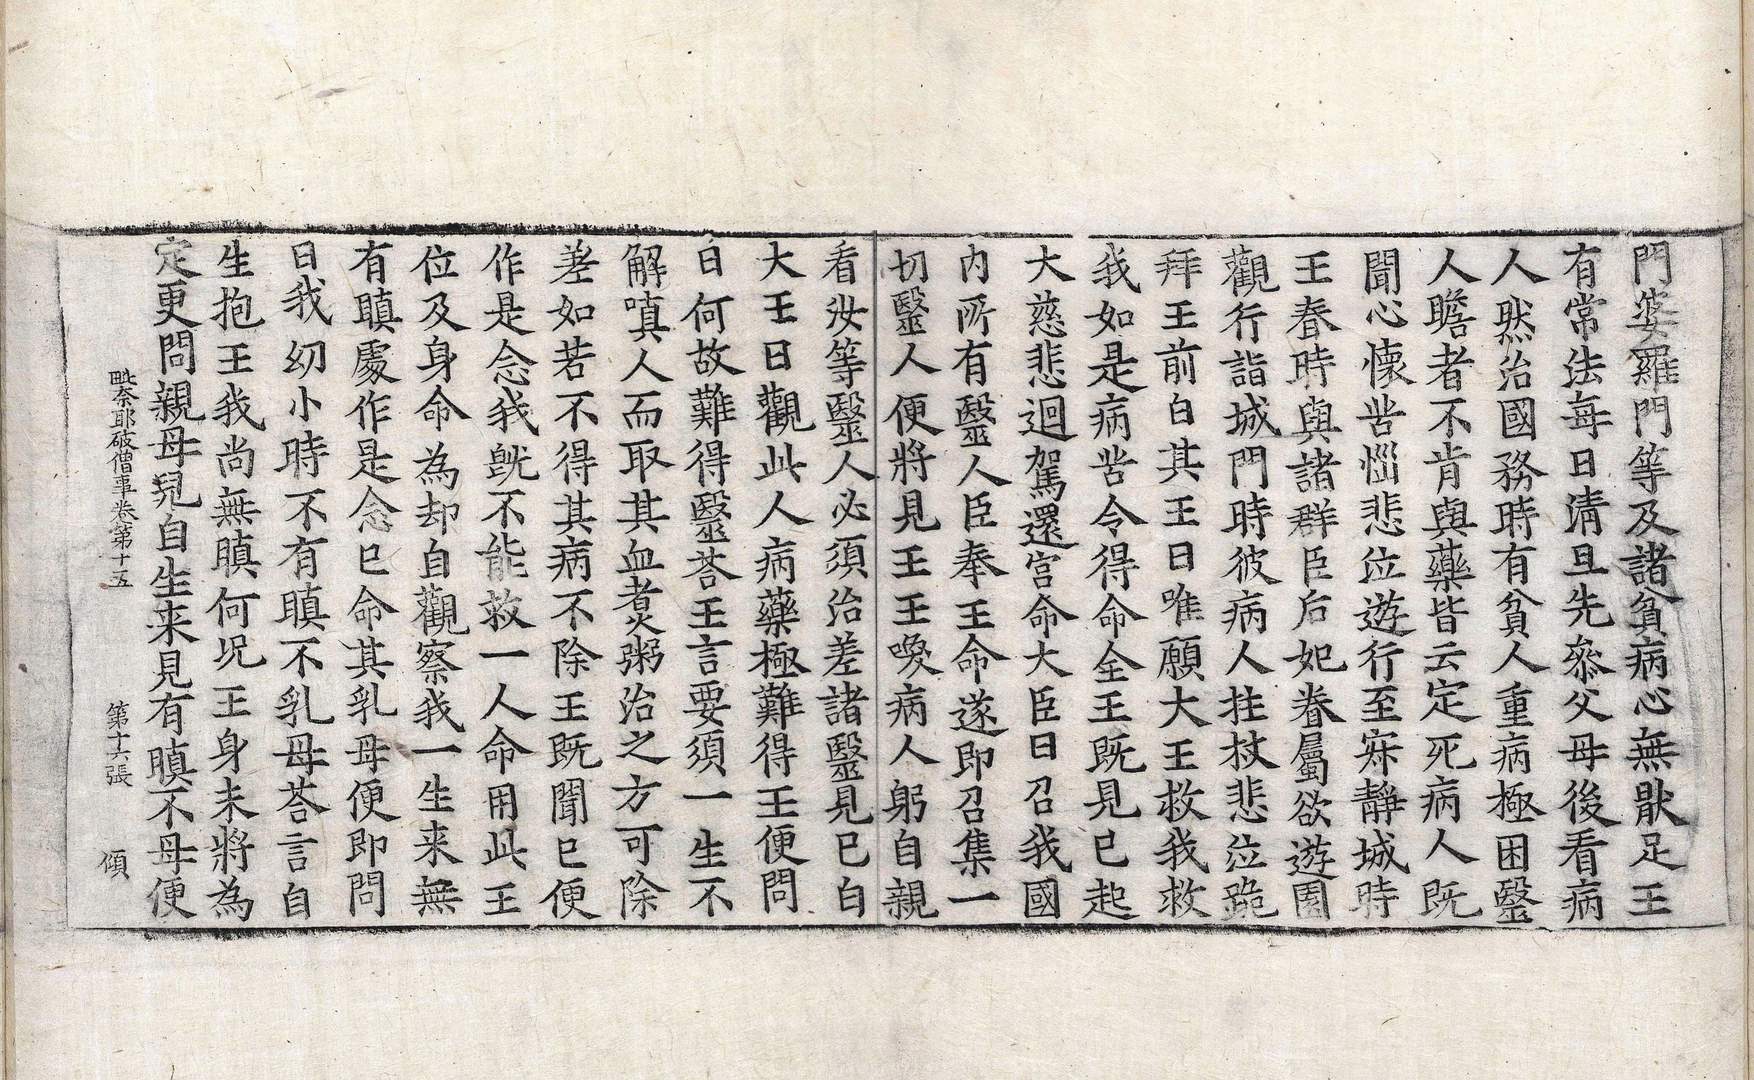 門婆羅門等及諸貧病心無猒足王
有常法每日淸旦先叅父母後看病
人然治國務時有貧人重病極困毉
人瞻者不肯與藥皆云定死病人旣
聞心懷苦惱悲泣遊行至寂靜城時
王春時與諸群臣后妃眷屬欲遊園
觀行詣城門時彼病人拄杖悲泣跪
拜王前白其王曰唯願大王救我救
我如是病苦令得命全王旣見已起
大慈悲迴駕還宮命大臣曰召我國
內所有毉人臣奉王命遂卽召集一
切毉人便將見王王喚病人躬自親
看汝等毉人必須治差諸毉見已白
大王曰觀此人病藥極難得王便問
曰何故難得毉荅王言要須一生不
解嗔人而取其血煮粥治之方可除
差如若不得其病不除王旣聞已便
作是念我旣不能救一人命用此王
位及身命為却自觀察我一生来無
有瞋處作是念已命其乳母便卽問
曰我幼小時不有瞋不乳母荅言自
生抱王我尚無瞋何況王身未將為
定更問親母兒自生来見有瞋不母便
毗奈耶破僧事卷第十五　第十六張　傾